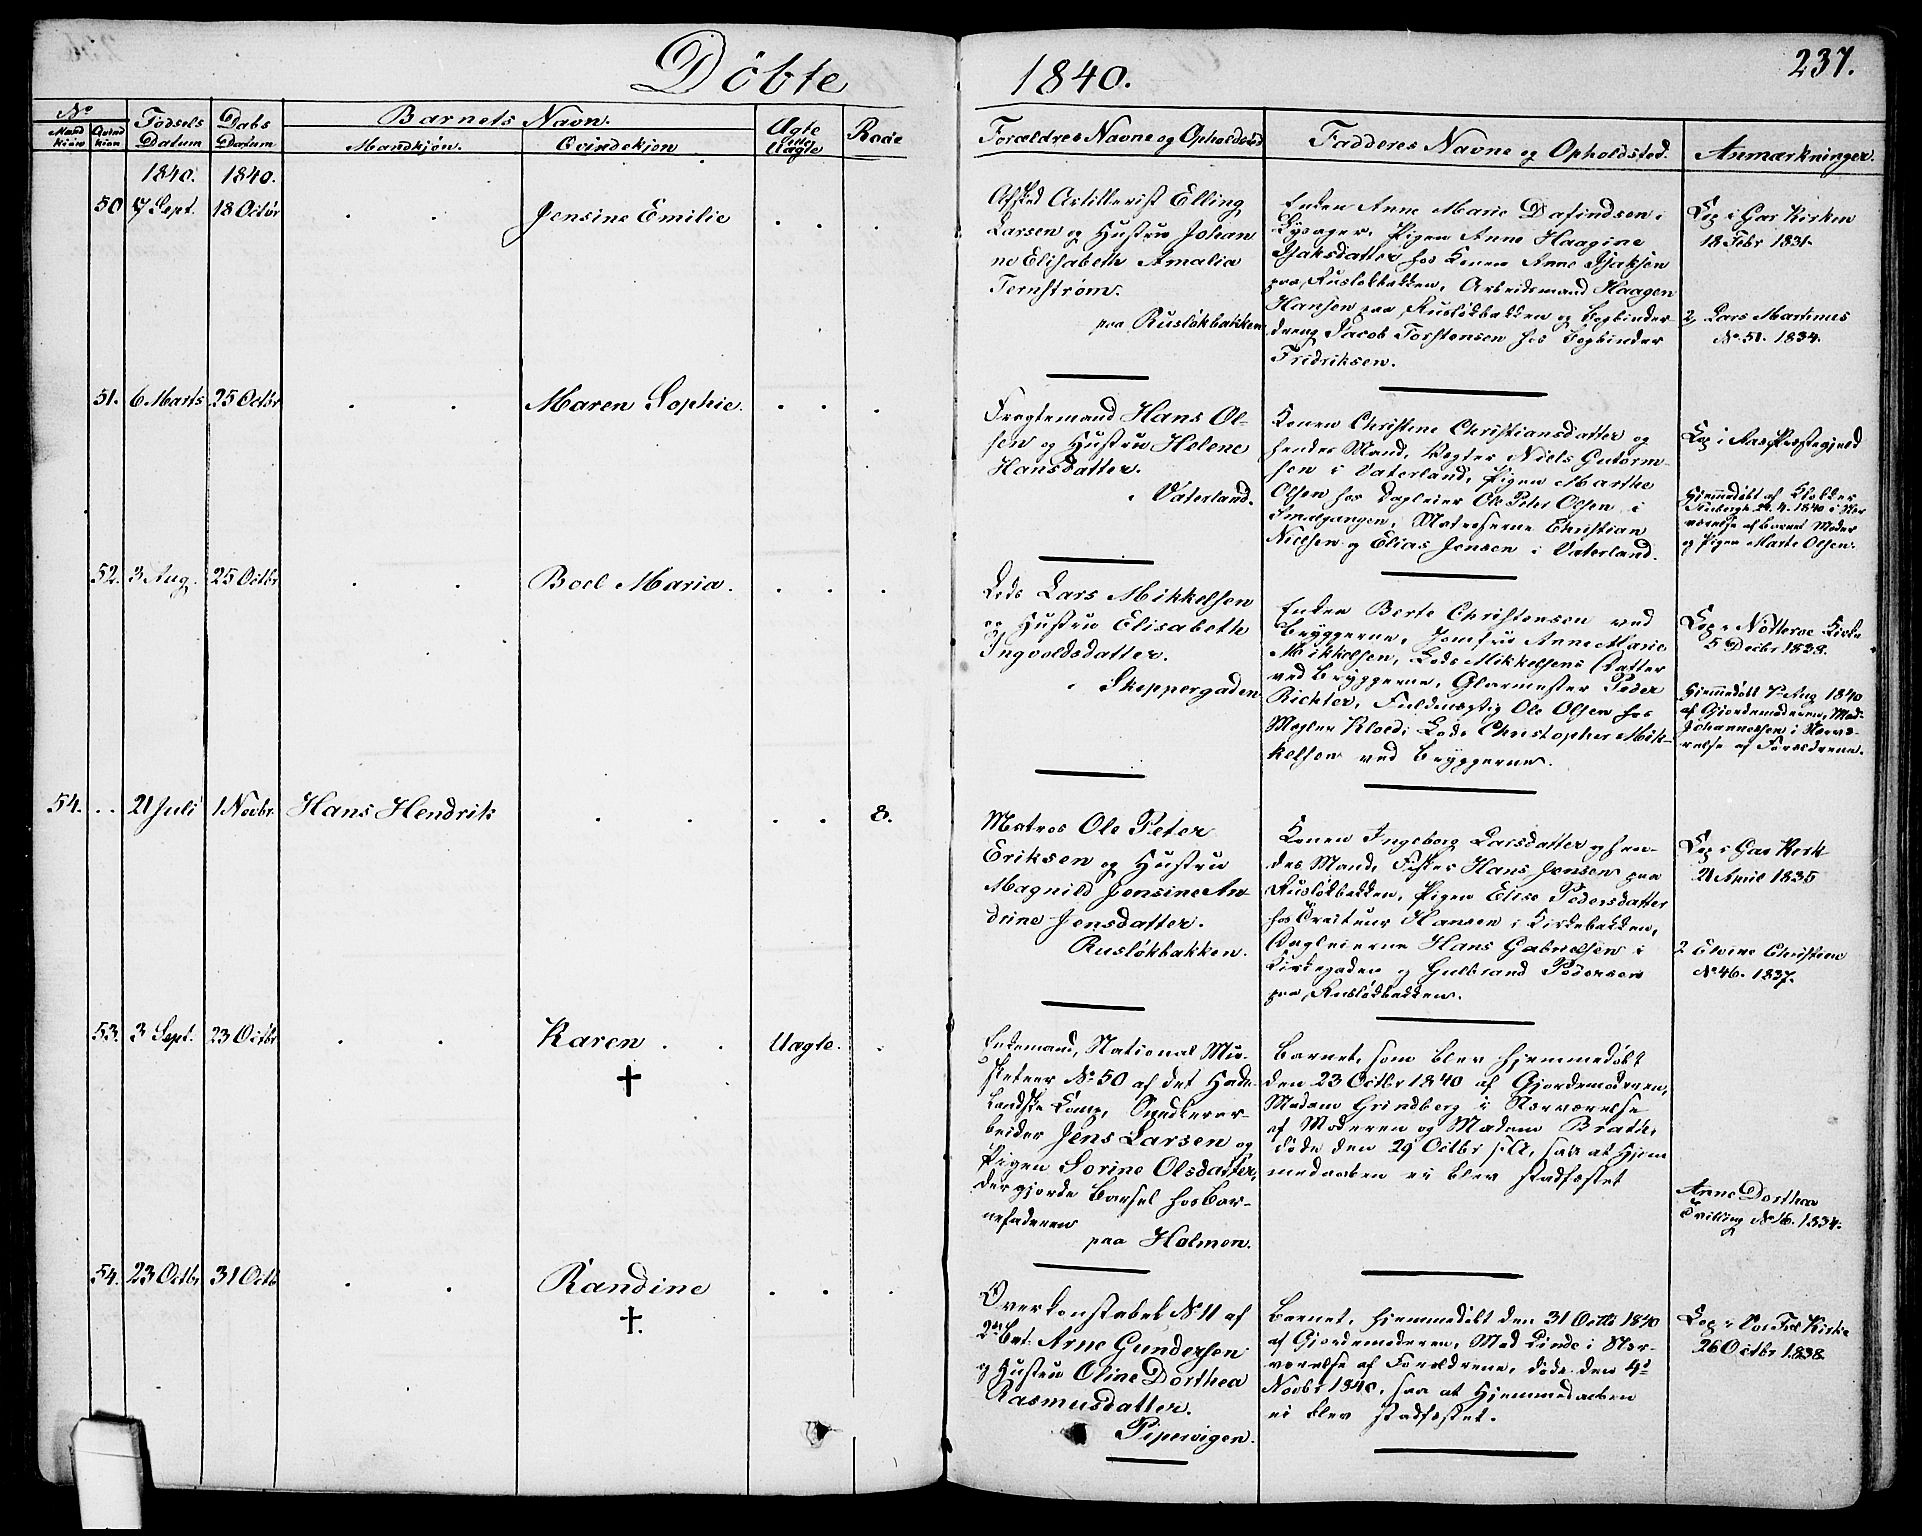 Døbte 1840. 237.
No
Mand kiøn Qvind kiøn Fødsels Datum Dabs Datum Barnets Navn. Ægte eller Uægte Rode
Mandkjøn. Qvindekjøn
Forældres Navne og Opholdsted Fadderes Navne og Opholdsted. Anmærkninger.
1840. 1840.
50 7 Sept. 18 Octbr Jensine Emilie
Afsked Artillerist Elling
Larsen og Hustru Johan
ne Elisabeth Amalia
Ternstrøm.
paa Rusløkbakken
Enken Anne Marie Dafindsen i
Bysager, Pigen Anne Haagine
Isaksdatter hos Konen Anne Isaksen
paa Rusløkbakken, Arbeidsmand Haagen
Hansen paa Rusløkbakken og Bogbinder
dreng Jacob Torstensen hos Bogbinder
Fridriksen.
Cop i Gar Kirken
18 Febr 1831.
2, Lars Martinus
No 51. 1834.
51. 6 Marts 25 Octbr Maren Sophie.
Fragtemand Hans Ol-
sen og Hustru Helene
Hansdatter.
i Vaterland.
Konen Christine Christiansdatter og
hendes Mand, Vægter Niels Gutorm-
sen i Vaterland, Pigen Marthe
Olsen hos Dagleier Ole Peter Olsen i
Smalgangen, Matroserne Christian
Nielsen og Elias Jensen i Vaterland.
Cop i Aas Præstegjeld
Hjemmedøbt af Klokker
29. 4. 1840 i Nær
værelse af Barnets Moder
og Pigen Marte Olsen.
52. 3 Aug. 25 Octbr Boel Maria.
Lods Lars Mikkelsen
og Hustru Elisabeth
Ingvoldsdatter.
i Skeppergaden
Enken Berte Christensen ved
Bryggerne, Jomfru Anne Marie
Mikkelsen, Lods Mikkelsens Datter
ved Bryggerne, Glarmester Peder
Richter, Fuldmægtig Ole Olsen hos
Mægler Kloed, Lods Christopher Mik-
kelsen ved Bryggerne.
Cop i Nøtterøe Kirke
5 Decbr 1838.
Hjemmedøbt 7de Aug 1840
af Gjordemoderen, Mad.
Johannesen i Nærvæ-
relse af Forældrene.
54. 21 Juli 1 Novbr. Hans Hendrik 8.
Matros Ole Peter
Eriksen og Hustru
Magnild Jensine An
drine Jensdatter.
Rusløkbakken.
Konen Ingeborg Larsdatter og hen-
des Mand, Fisker Hans Jensen paa
Rusløkbakken, Pigen Elise Pedersdatter
hos Traiteur Hansen i Kirkebakken,
Dagleierne Hans Gabrielsen i
Kirkegaden og Gulbrand Pedersen
paa Rusløkbakken.
Cop i Gar Kirk
21 April 1835
2 Elvine Christine
No 46. 1837.
53. 3 Sept. 23 Octbr Karen Uægte.
Enkemand, National Mus-
keteer No 50 af det Hade-
landske Comp, Snedkerar-
beider Jens Larsen og
Pigen Sorine Olsdatter,
der gjorde Barsel hos Bar-
nefaderen
paa Holmen.
Barnet, som blev hjemmedøbt
den 23 Octbr 1840 af Gjordemoderen,
Madam Grindberg i Nærværelse
af Moderen og Madam Brath,
døde den 29 Octbr s: A, saa at Hjem
medaaben ei blev stadfæstet
Anne Dorthea
Tvilling No 16. 1834.
54. 23 Octbr 31 Octb Randine
Overkonstabel No 11 af
2den Bat. Arne Gundersen
og Hustru Oline Dorthea
Rasmusdatter.
Pipervigen.
Barnet, hjemmedøbt den 31 Octbr 1840
af Gjordemoderen, Mad Linde i Nær-
værelse af Forældrene, døde den 4de
Novbr 1840, saa at Hjemmedaaben
ei blev stadfæstet.
Cop i Vor Frels Kirke
26 Octbr 1838.